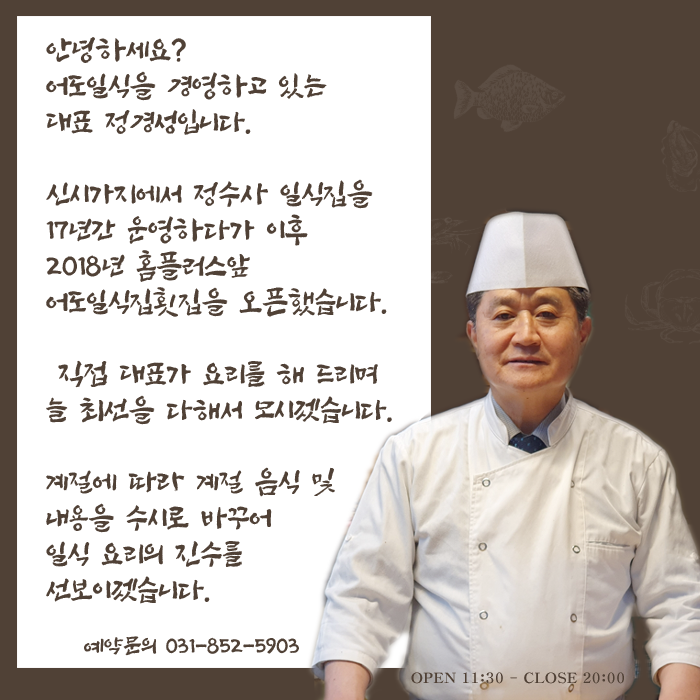 안녕하세요?
어도일식을 경영하고 있는
대표 정경성입니다.
신시가지에서 정수사 일식집을
17년간 운영하다가 이후
2018년 홈플러스앞
어도일식집횟집을 오픈했습니다.
직접 대표가 요리를 해 드리며
늘 최선을 다해서 모시겠습니다.
계절에 따라 계절 음식 및
내용을 수시로 바꾸어
일식 요리의 진수를
선보이겠습니다.
예약문의 031-852-5903
OPEN 11:30 - CLOSE 20:00